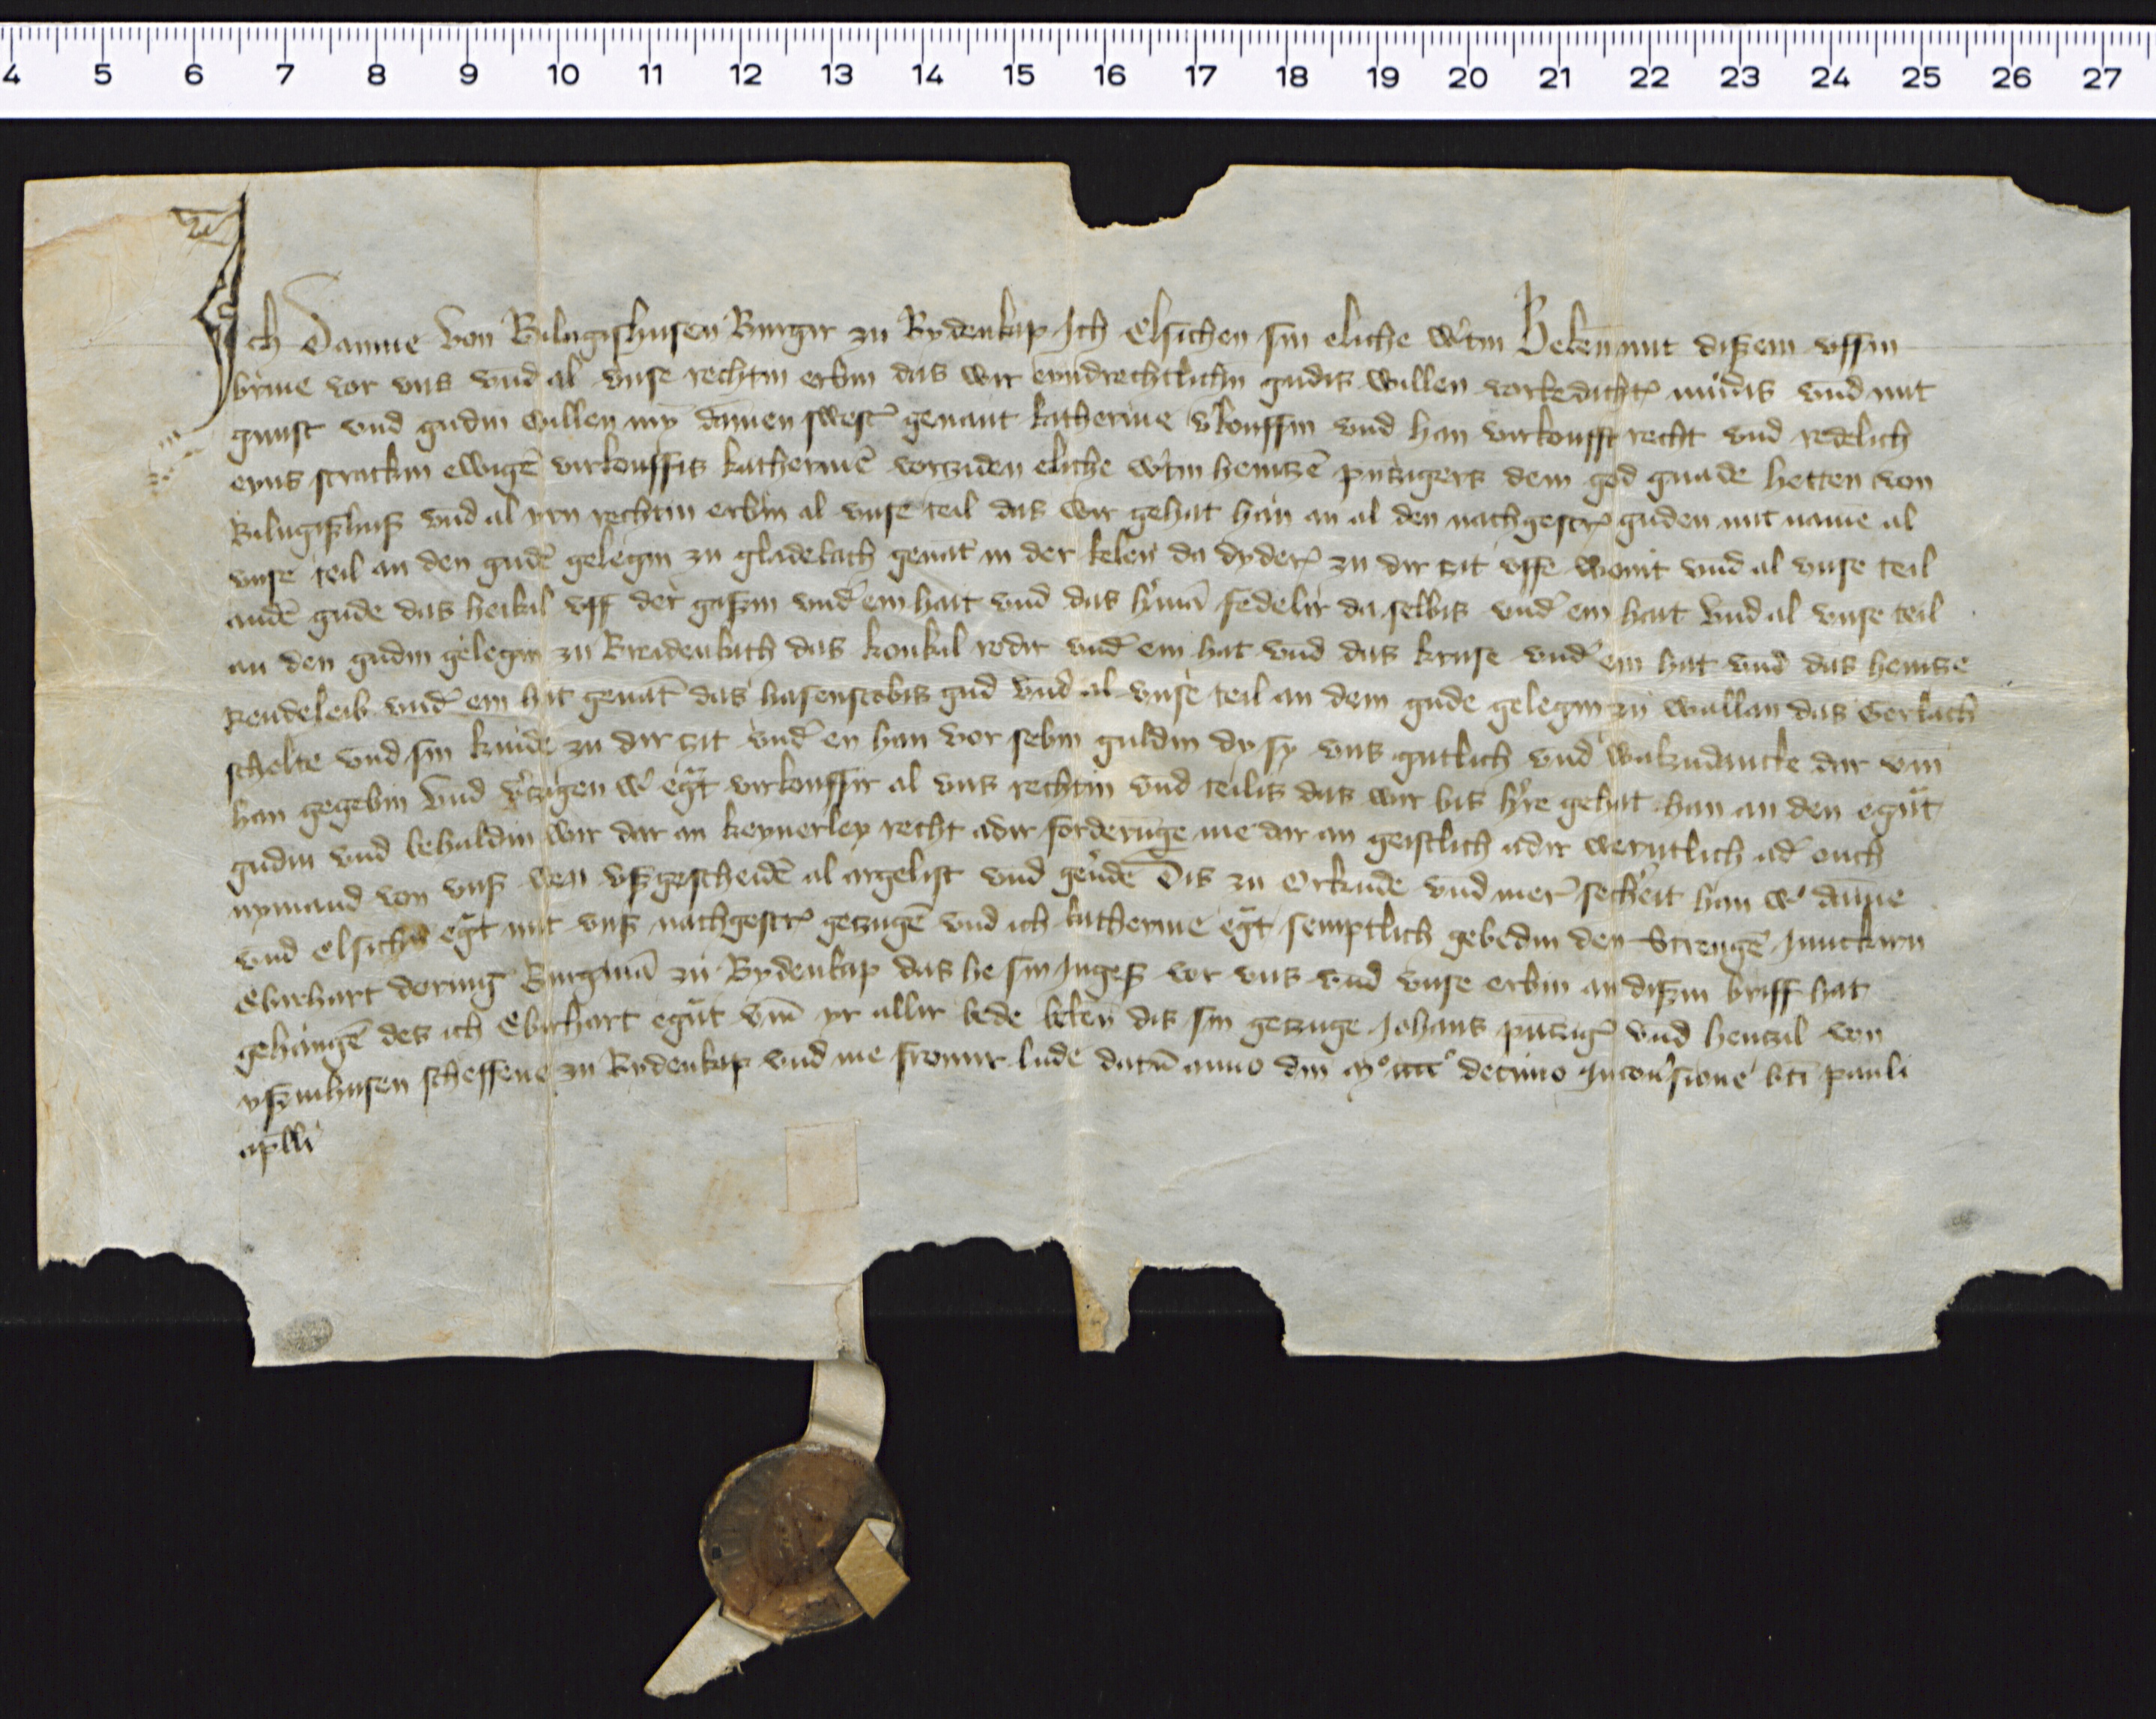 4 5 6 7 8 9 10 11 12 13 14 15 16 17 18 19 20 21 22 23 24 25 26 27
Ich Damme von Bilngishusen Burger zu Bydenkap Ich Elsichen sin eliche w'tin Bekēn mit dißem uffin
brive vor uns und al unse rechtin erbin das wir eyndrechtlichin gudis willen vorbedachtꝰ mudis und mit
gunst und gudin willen my dāmen swestꝰ genant katherine v'kouffin und han virkoufft recht und redelich
eyns strackin ewigē virkouffis katherinē vorziden eliche w'tin heintzē puzigers dem god gnade hetten von
Bilngißhuß und al yrn rechtin erbin al unse teil das wir gehat han an al den nachgescrꝰ guden mit name al
unse teil an den gudē gelegin zu gladebach genāt in der kelen da dyderꝰ zu dir zit uffe wonit und al unse teil
andē gude das heikil uff der gaßin undꝰ em hait und das h'mā fedelir da selbis undꝰ em hait und al unse teil
an den gudin gelegin zu Breidenbach das konkil rodir undꝰ em hat und das kruse undꝰ em hat und das heintze
Rendeleib undꝰ em hat genāt das hasenstobis gud und al unse teil an dem gude gelegin zu wallan das Gerlach
schelte und sin kinde zu dir zit undꝰ en han vor sebin guldin dy sy uns gutlich und walzudancke dar um
han gegebin und v'zigen w' egt virkouffir al uns rechtin und teilis das wir bis h're gehat han an den egūt
gudin und behaldin wir dar an keynerley recht adir forderūge me dar an geistlich adir werntlich adꝰ ouch
nymand von unß wen ußgescheidē al argelist und gev'dē Dis zu Orkūde und merꝰ sech'eit han w' dāme
und elsichin egt mit unß nachgescrꝰ gezugē und ich katherine egt semptlich gebedin den Strengē Junckern
Ebirhart doring Burgmā zu Bydenkap das he sin Ingeß vor uns und unse erbin an dißin briff hat
gehangē des ich Ebirhart egūt um yr allir bede bekēn dis sin gezuge Johans puzigꝰ und hentzil von
yßinhusen scheffene zu Bydenkap und me fromir lude datū anno dni mº ccccº decimo In cōv'sione bti pauli
apl̄li